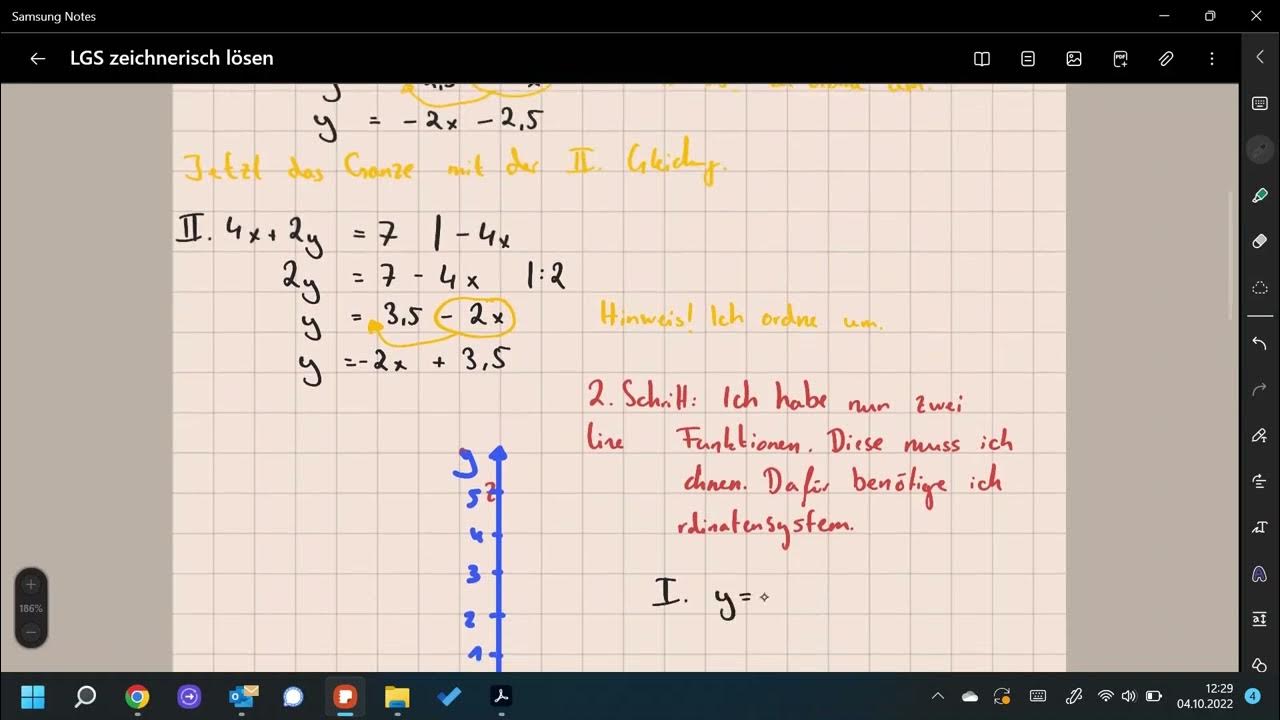 Samsung Notes
LGS zeichnerisch lösen
um.
y = - 2x - 2,5
Jetzt das Ganze mit der II. Gleichung.
II. 4x + 2y = 7 | - 4x
2y = 7 - 4x | : 2
y = 3,5 - 2x
Hinweis! Ich ordne um.
y = - 2x + 3,5
2. Schritt: Ich habe nun zwei
line Funktionen. Diese muss ich
chnen. Dafür benötige ich
rdinatensystem.
y
5
4
3
I. y =
2
1
186%
12:29
04.10.2022
4